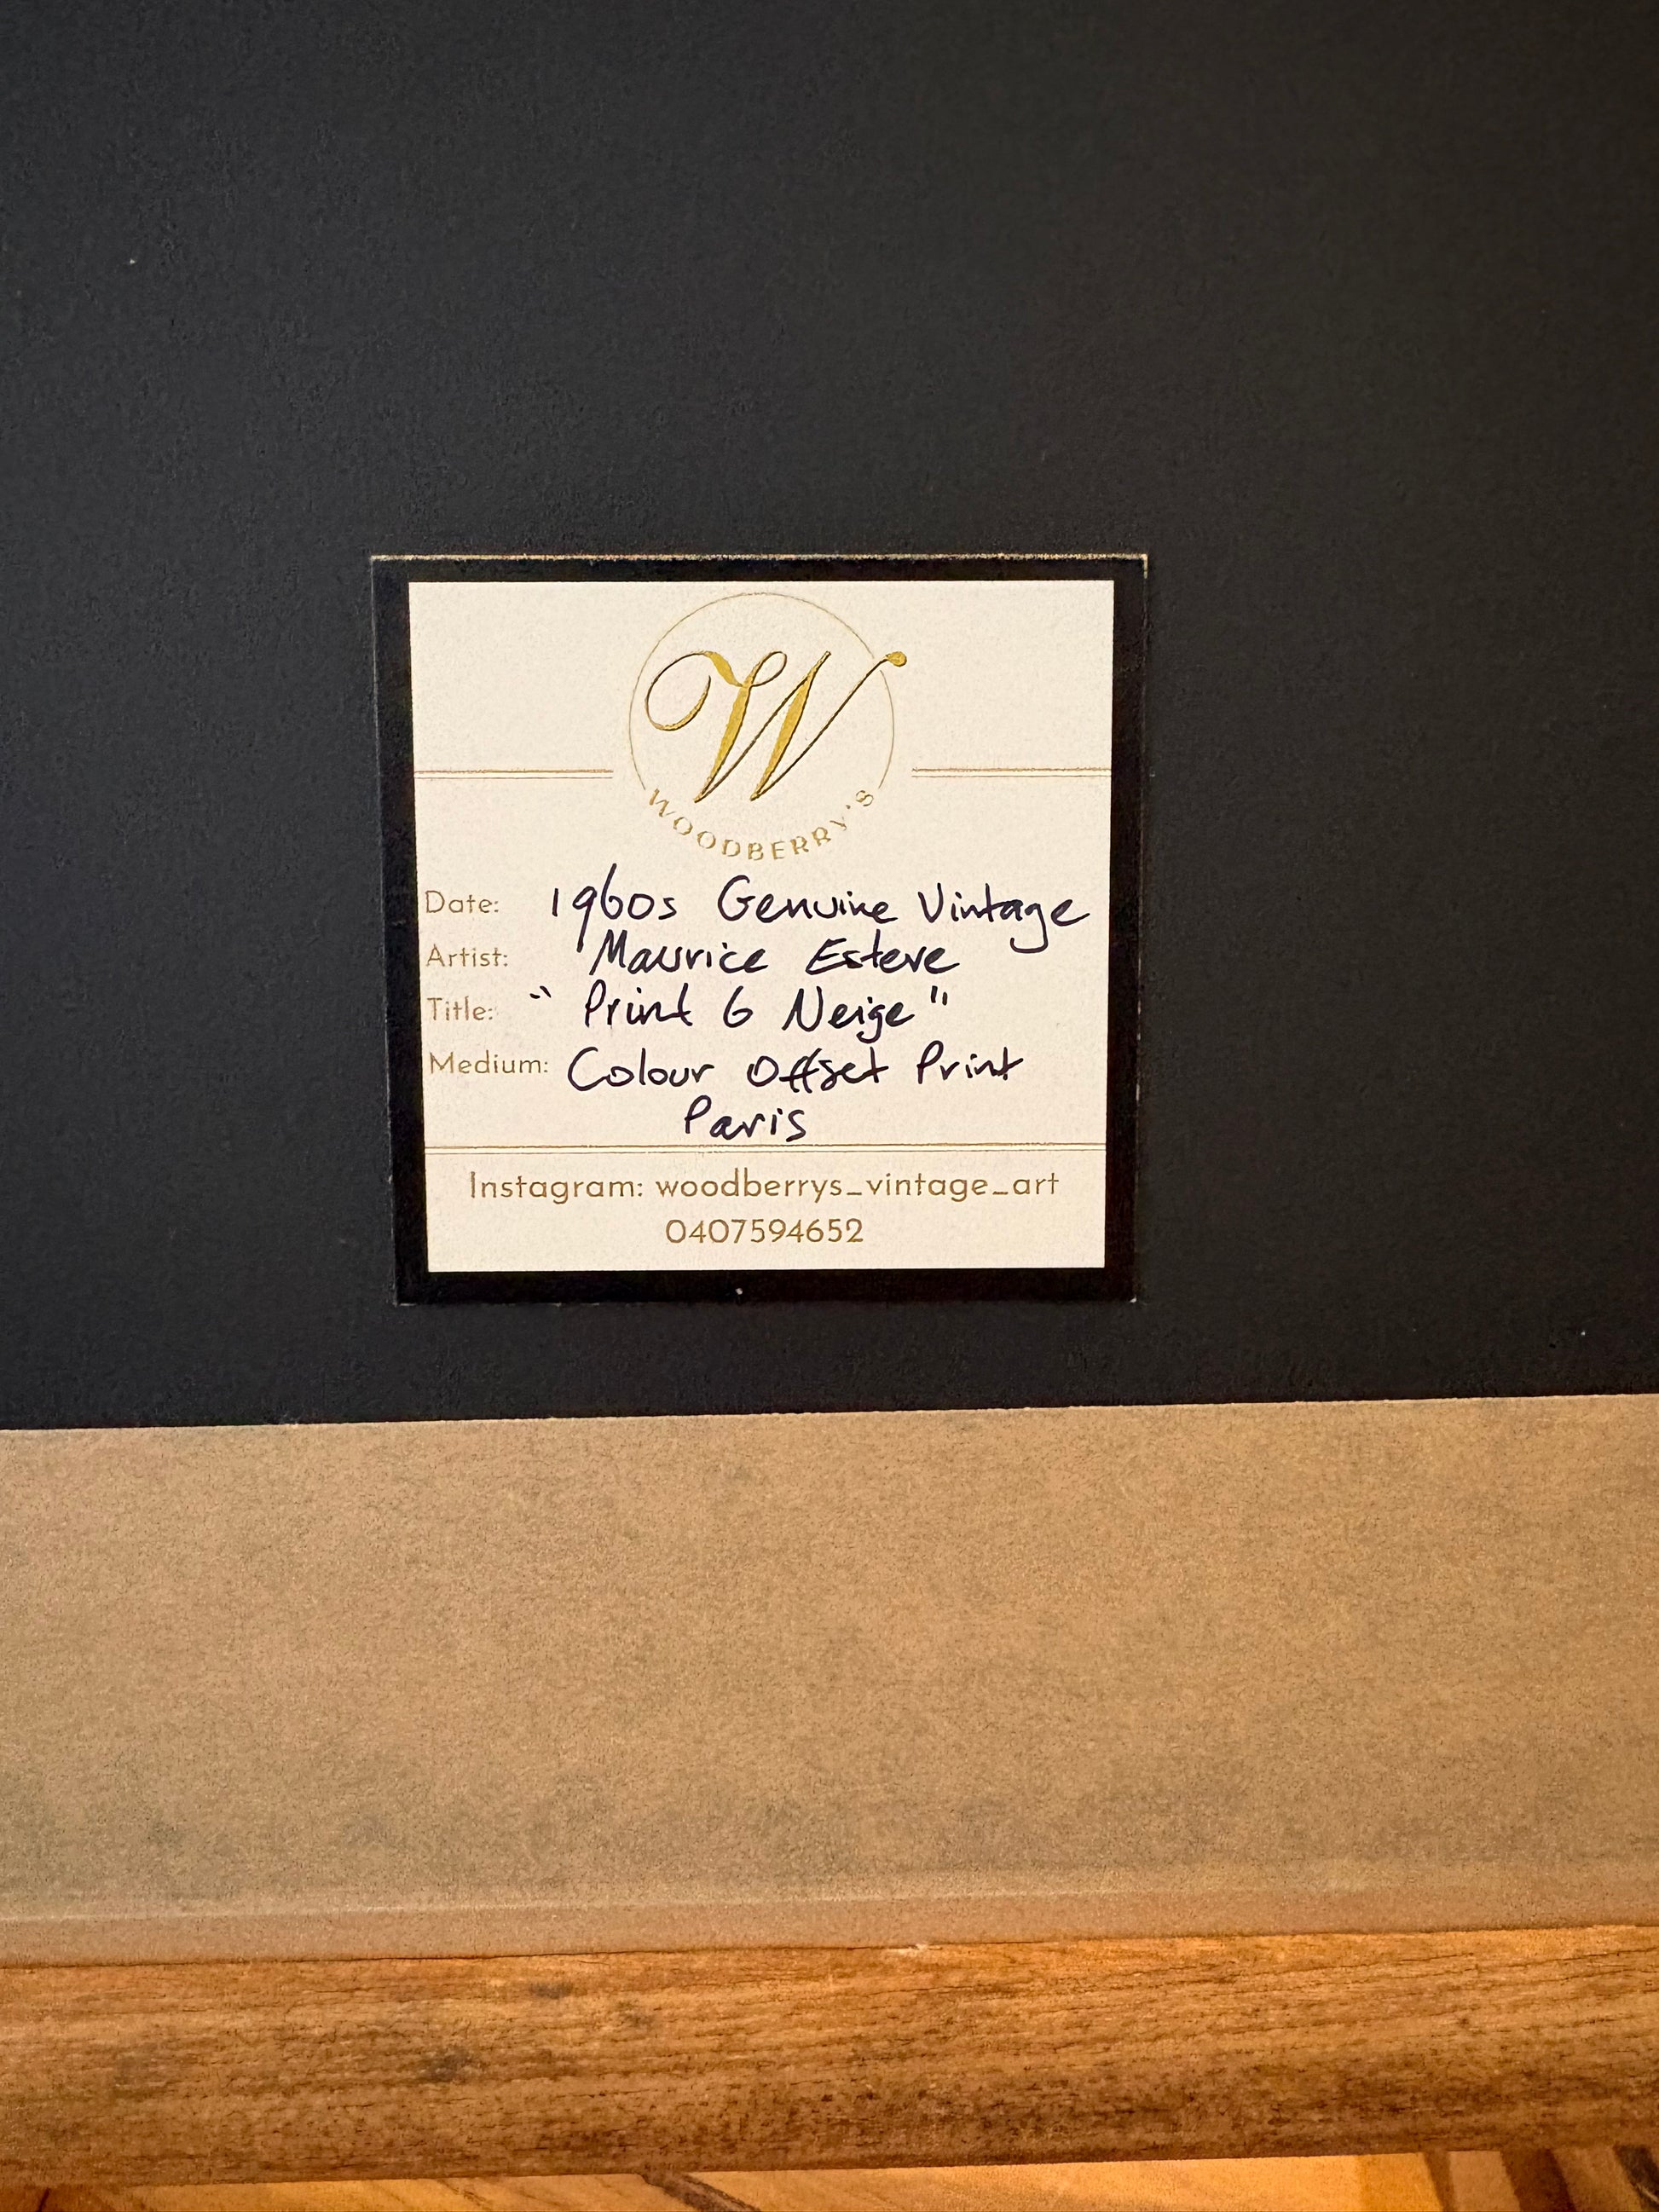 W
WOODBERRY'S
Date: 1960s Genuine Vintage
Artist: Maurice Esteve
Title: "Print 6 Neige"
Medium: Colour Offset Print
Paris
Instagram: woodberrys_vintage_art
0407594652